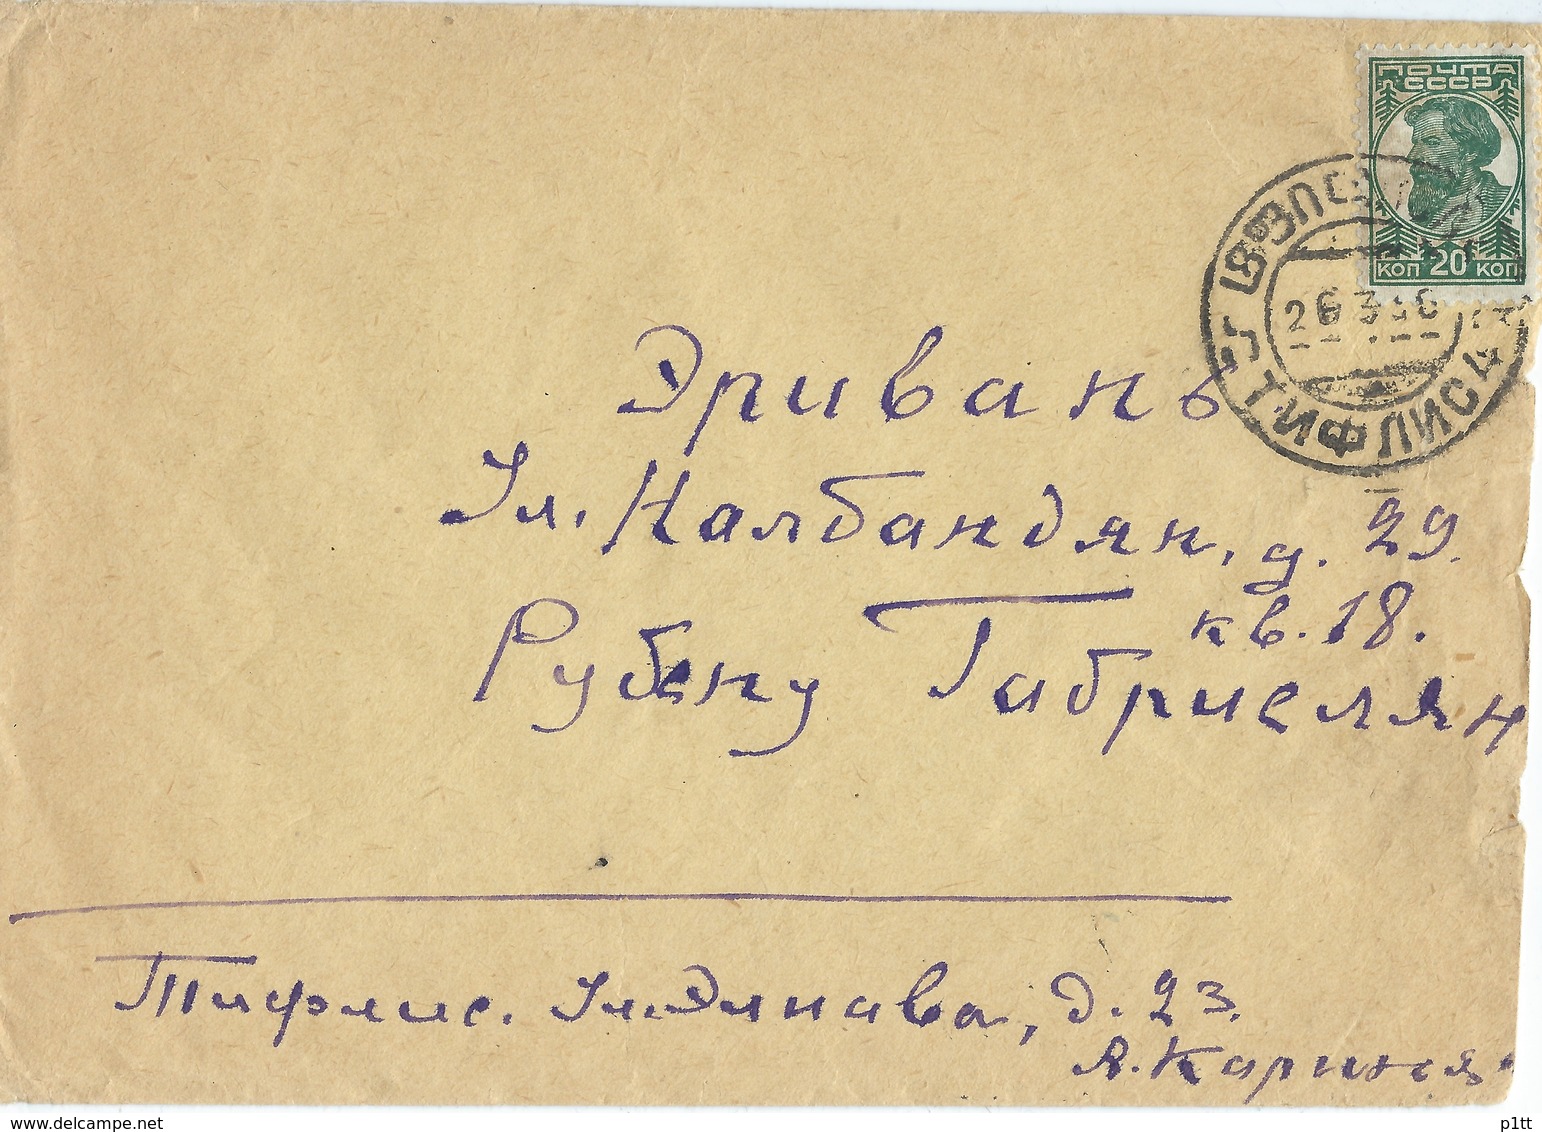 ПОЧТА
СССР
КОП 20 КОП
ТИФЛИС
Эривань
Ул. Налбандян, д. 29.
кв. 18.
Рубену Габриелян
Тифлис. Ул. Элиава, д. 23.
www.delcampe.net
p1tt